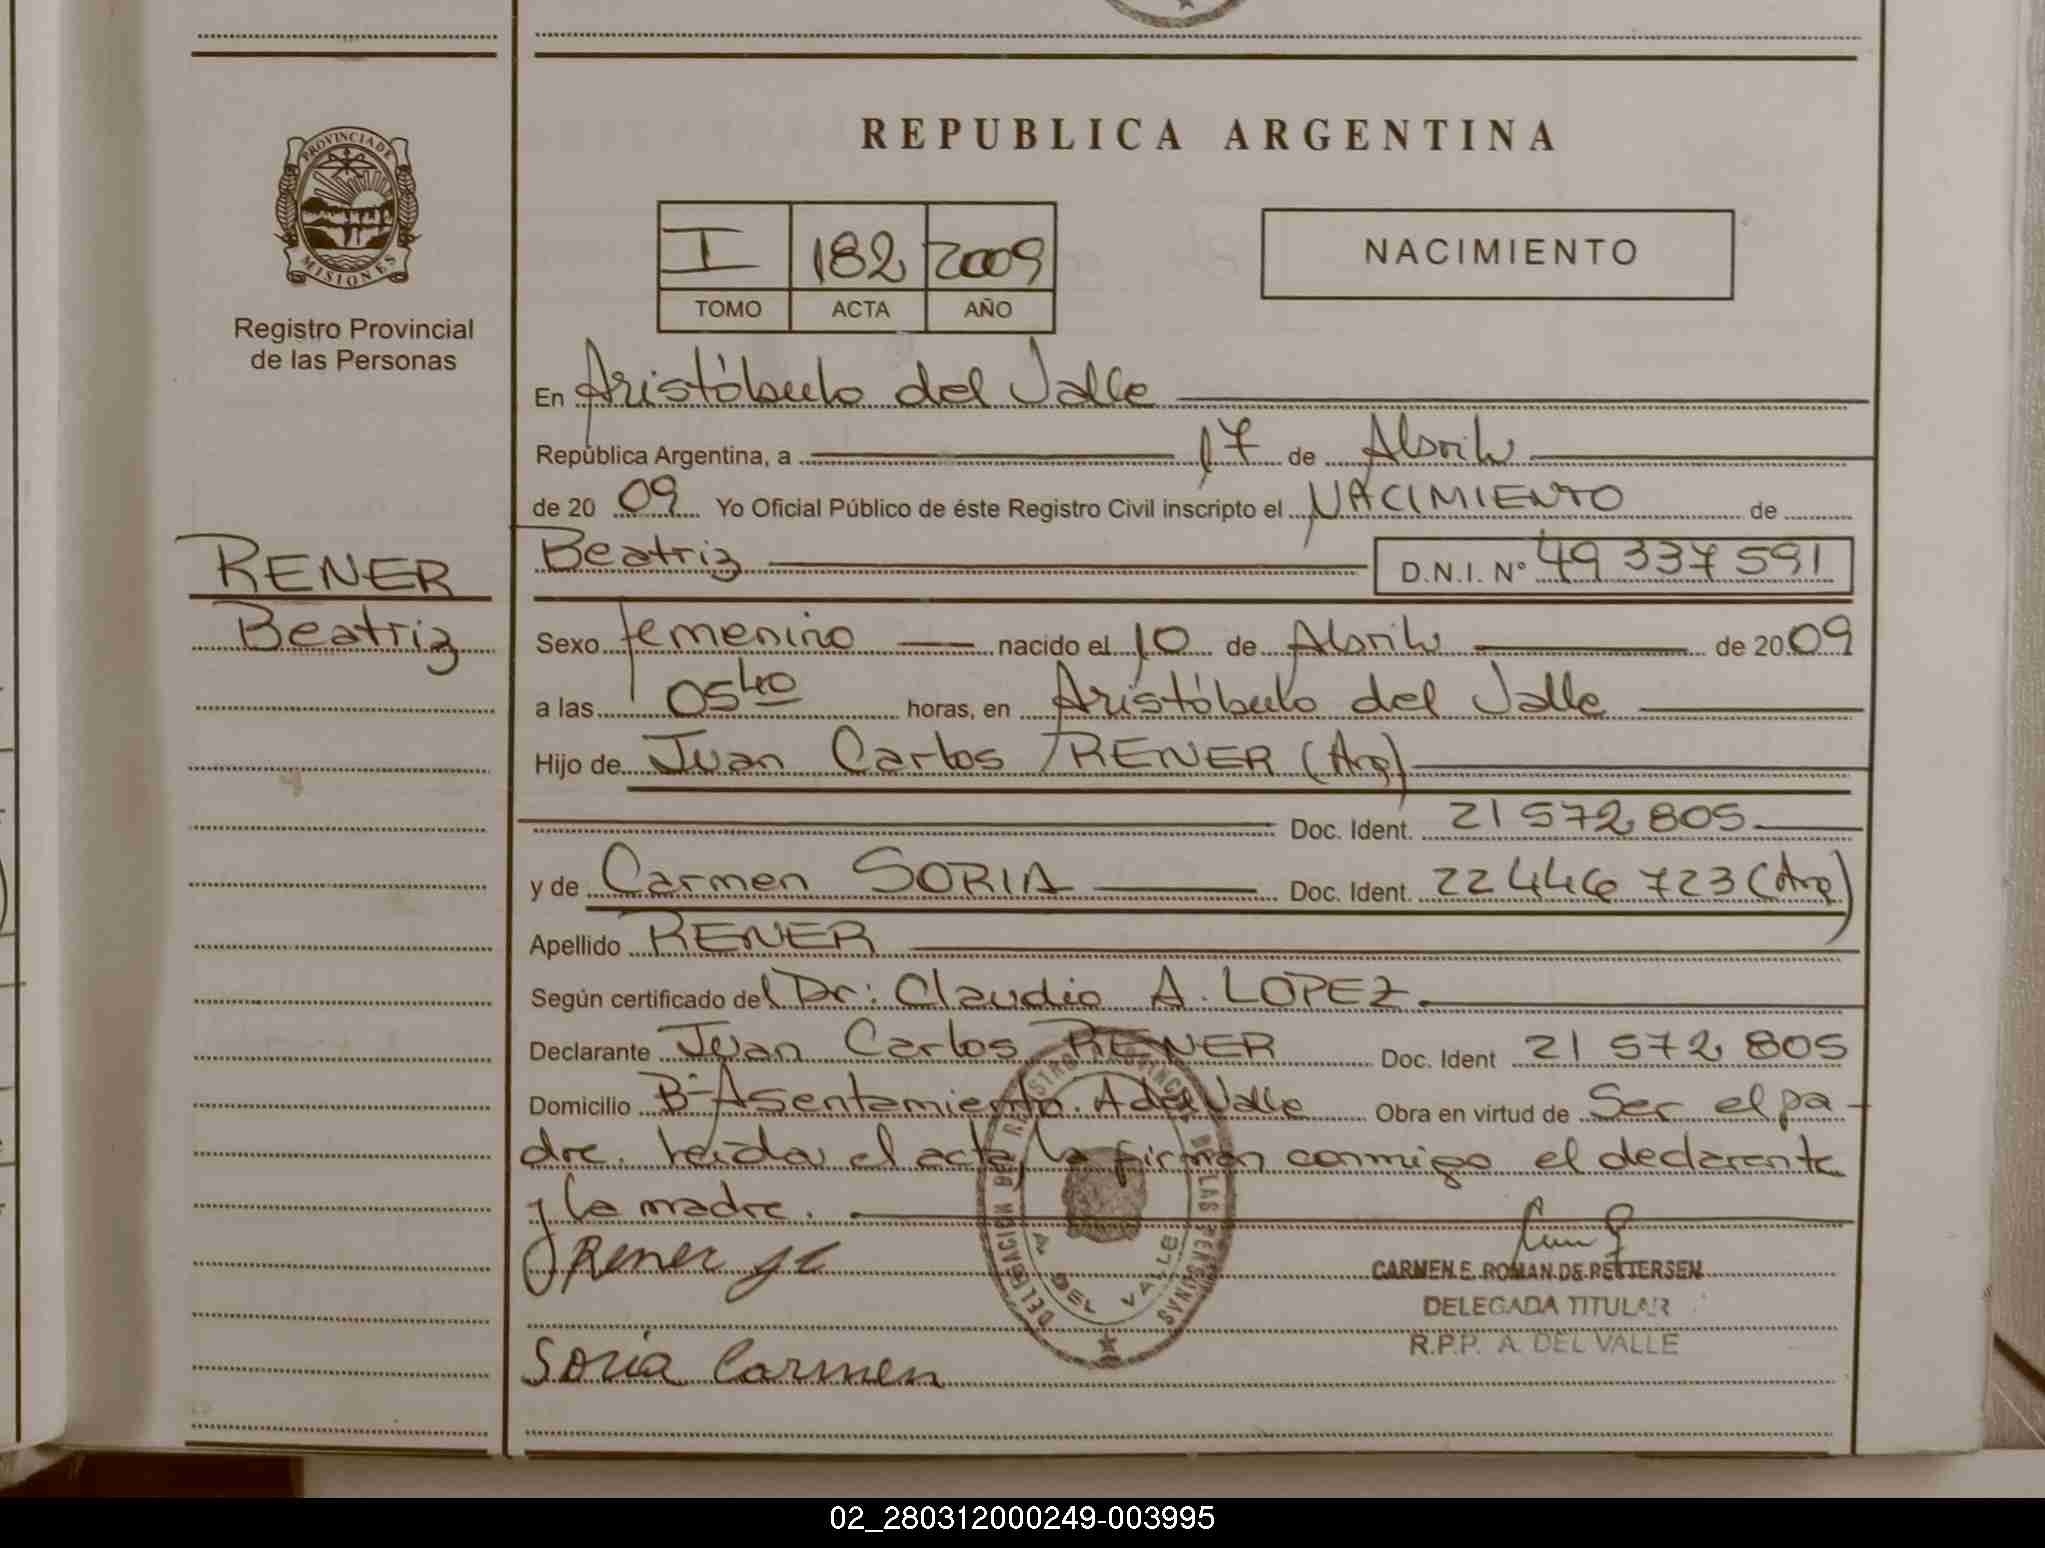 PROVINCIA DE
MISIONES
Registro Provincial
de las Personas
RENER
Beatriz
REPUBLICA ARGENTINA
I 182 2009
TOMO ACTA AÑO
NACIMIENTO
En Aristóbulo del Valle
República Argentina, a 17 de Abril
de 20 09 Yo Oficial Público de éste Registro Civil inscripto el NACIMIENTO de
Beatriz D.N.I. N° 49 337 591
Sexo femenino nacido el 10 de Abril de 20 09
a las 05 40 horas, en Aristóbulo del Valle
Hijo de Juan Carlos RENER (Arg)
Doc. Ident. 21 572 805
y de Carmen SORIA Doc. Ident. 22 446 723 (Arg)
Apellido RENER
Según certificado del Dr: Claudio A. LOPEZ
Declarante Juan Carlos RENER Doc. Ident 21 572 805
Domicilio B° Asentamiento. A del Valle Obra en virtud de Ser el pa-
dre. Leida el acta, la firman conmigo el declarante
y la madre.
Rener J C
CARMEN E. ROMAN DE PETTERSEN
DELEGADA TITULAR
R.P.P. A. DEL VALLE
Soria Carmen
DELEGACION REGISTRO PROVINCIAL DE LAS PERSONAS
A. DEL VALLE
02_280312000249-003995